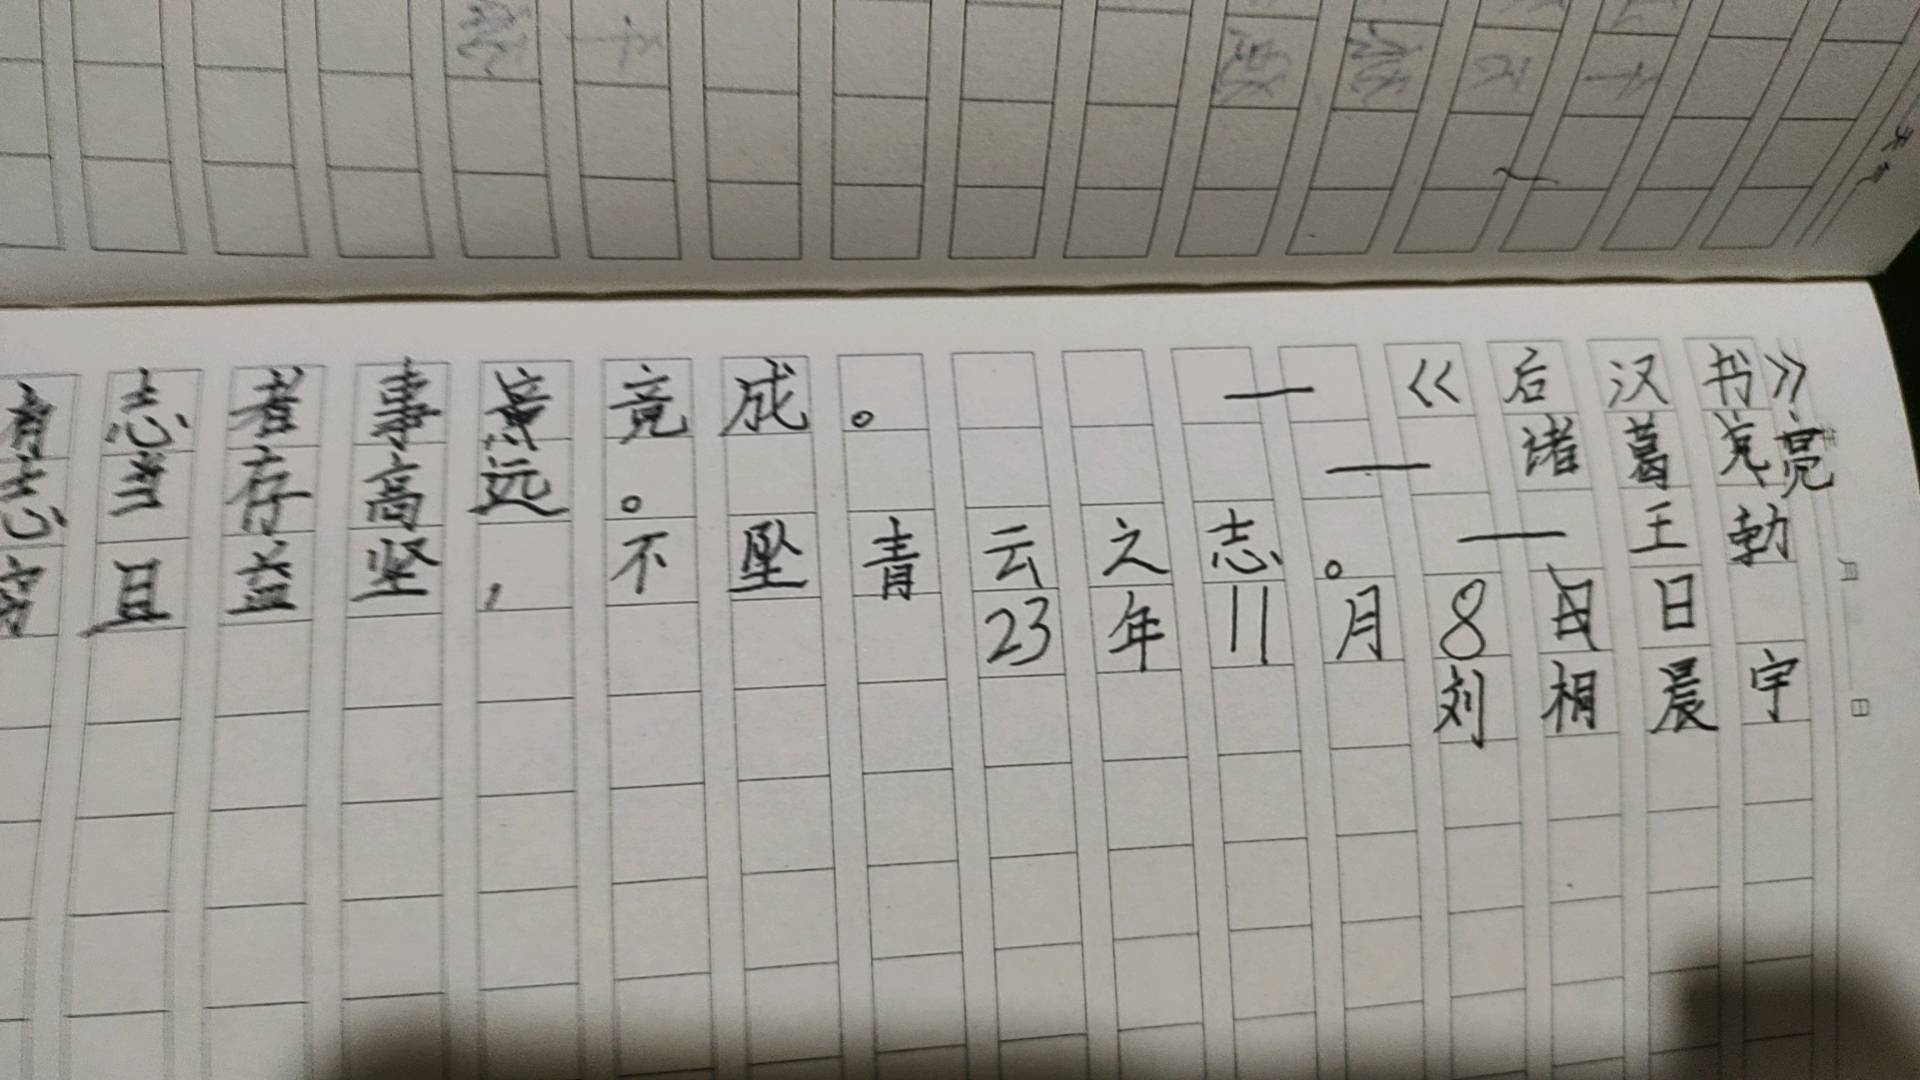 有志者事竟成。 — 《后汉书》
志当存高远。 — 诸葛亮
穷且益坚，不坠青云之志。 — 王勃
23年11月8日
刘相晨宇
月
日